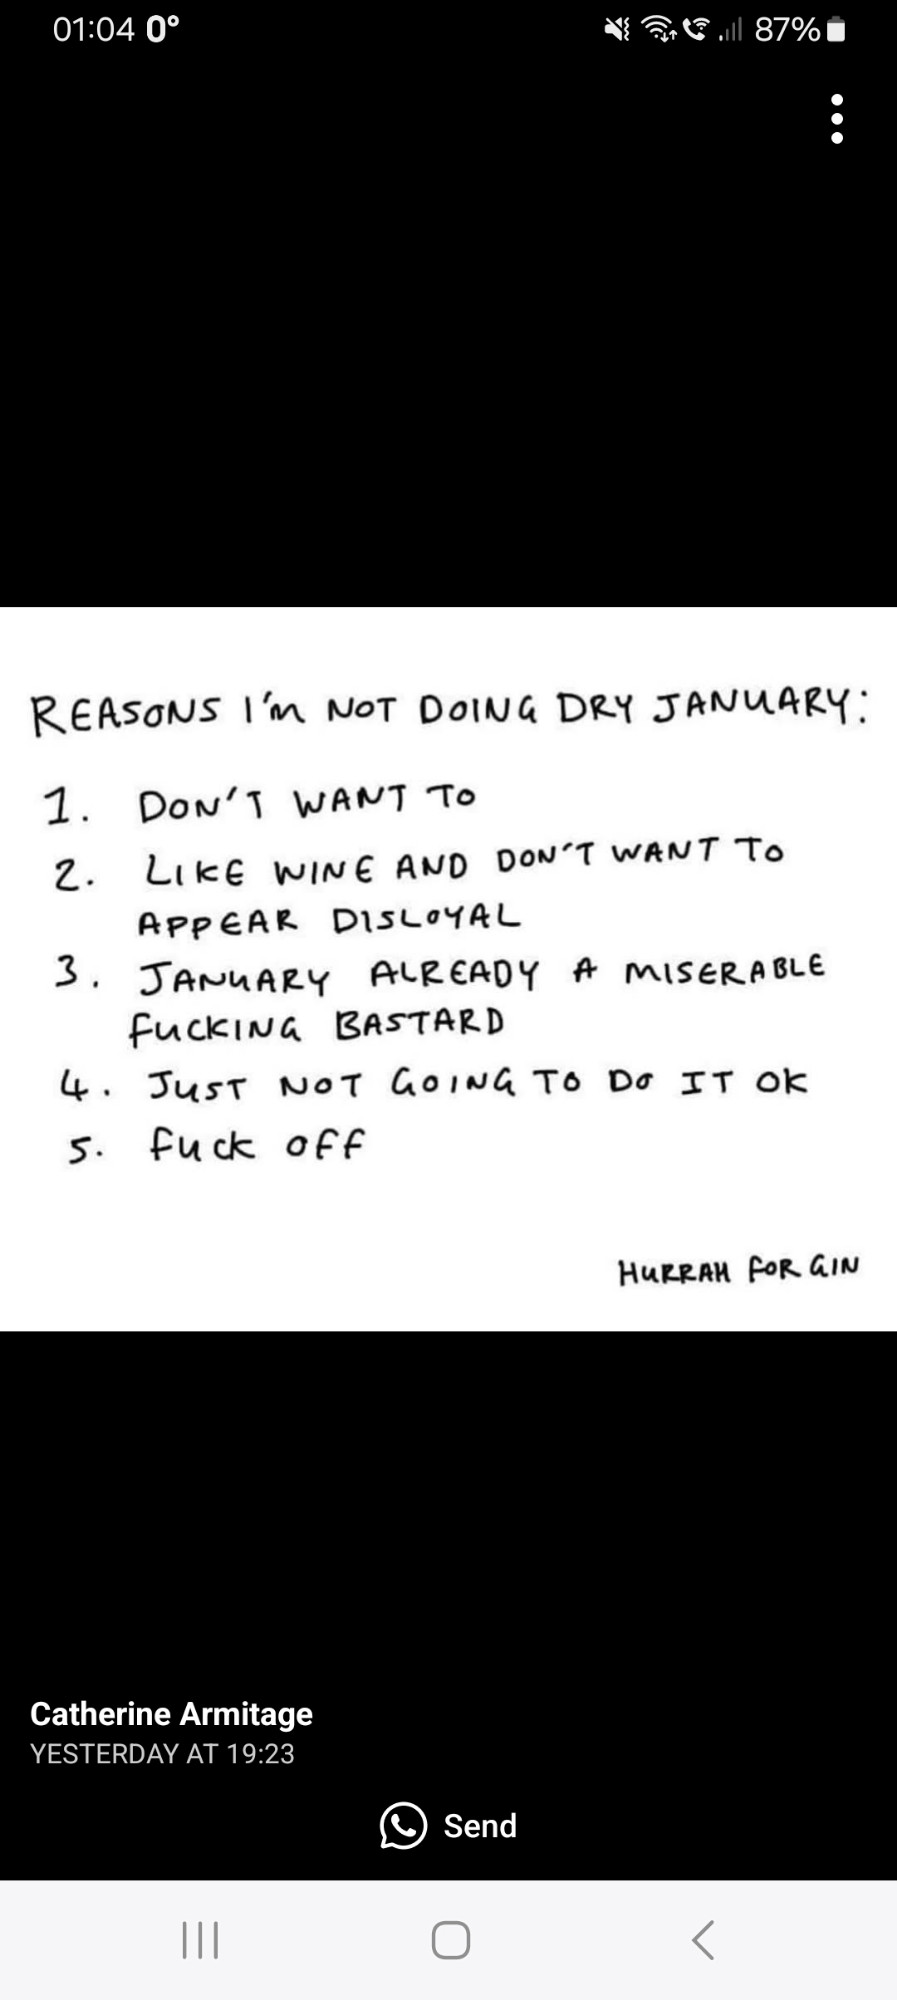 01:04 0°
87%
REASONS I'm NOT DOING DRY JANUARY:
1. DON'T WANT TO
2. LIKE WINE AND DON'T WANT TO
APPEAR DISLOYAL
3. JANUARY ALREADY A MISERABLE
FUCKING BASTARD
4. JUST NOT GOING TO DO IT OK
5. fuck off
HURRAH FOR GIN
Catherine Armitage
YESTERDAY AT 19:23
Send